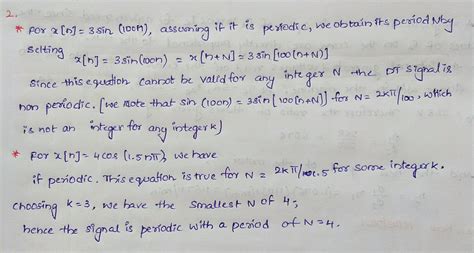 2.
* For x[n] = 3sin(100n), assuming if it is periodic, we obtain its period N by
setting
x[n] = 3sin(100n) = x[n+N] = 3sin[100(n+N)]
Since this equation cannot be valid for any integer N the DT signal is
non periodic. [we note that sin(100n) = 3sin[100(n+N)] for N = 2kπ/100, which
is not an integer for any integer k)
* For x[n] = 4cos(1.5nπ), we have
if periodic. This equation is true for N = 2kπ/1.5 for some integer k.
choosing k=3, we have the smallest N of 4;
hence the signal is periodic with a period of N=4.